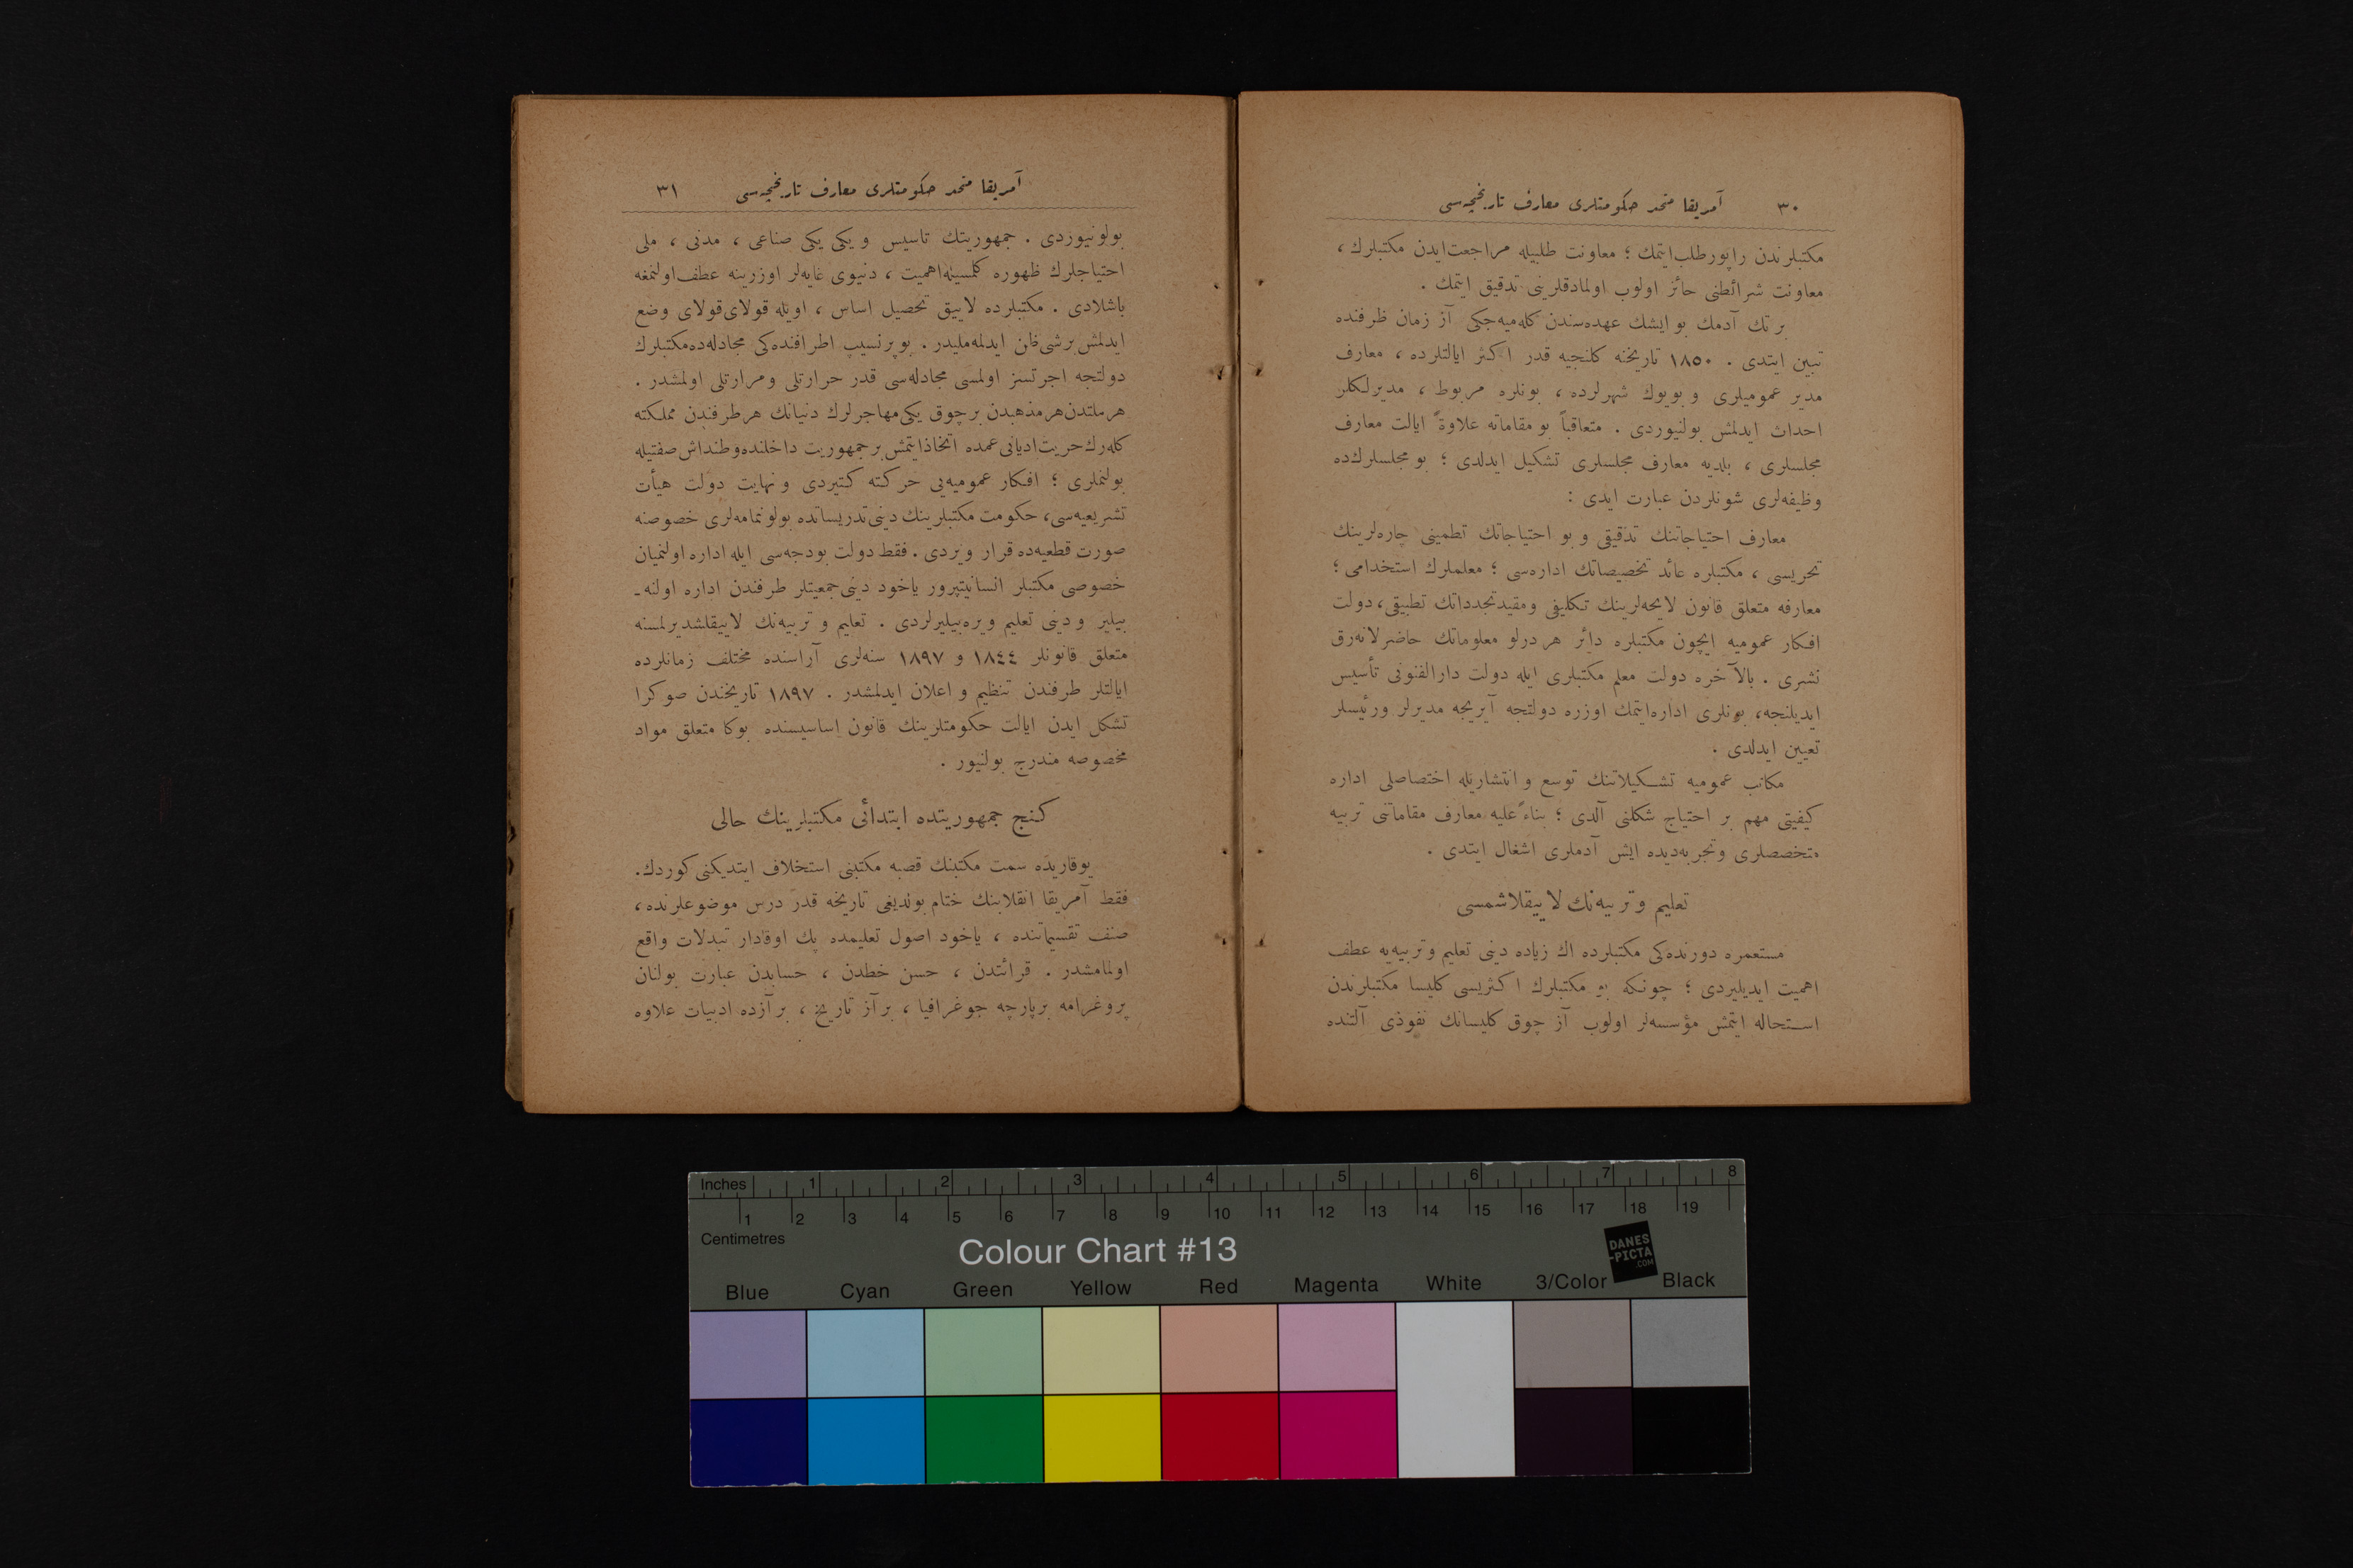 ٣٠ آمريقا متحد حكومتلرى معارف تاريخچه‌سى
مكتبلرندن راپور طلب ايتمك ؛ معاونت طلبيله مراجعت ايدن مكتبلرك ،
معاونت شرائطنى حائز اولوب اولمادقلرينى تدقيق ايتمك .
بر تك آدمك بو ايشك عهده‌سندن كله‌ميه‌جكى آز زمان ظرفنده
تبين ايتدى . ١٨٥٠ تاريخنه كلنجيه قدر اكثر ايالتلرده ، معارف
مدير عموميلرى و بويوك شهرلرده ، بونلره مربوط ، مديرلكلر
احداث ايدلمش بولنيوردى . متعاقباً بو مقاماته علاوةً ايالت معارف
مجلسلرى ، بلديه معارف مجلسلرى تشكيل ايدلدى ؛ بو مجلسلرك‌ده
وظيفه‌لرى شونلردن عبارت ايدى :
معارف احتياجاتنك تدقيقى و بو احتياجاتك تطمينى چاره‌لرينك
تحريسى ، مكتبلره عائد تخصيصاتك اداره‌سى ؛ معلملرك استخدامى ؛
معارفه متعلق قانون لايحه‌لرينك تكليفى ومقيد تجدداتك تطبيقى ، دولت
افكار عموميه ايچون مكتبلره دائر هر درلو معلوماتك حاضرلانه‌رق
نشرى . بالآخره دولت معلم مكتبلرى ايله دولت دارالفنونى تأسيس
ايديلنجه، بونلرى اداره ايتمك اوزره دولتجه آيريجه مديرلر ورئيسلر
تعيين ايدلدى .
مكاتب عموميه تشكيلاتنك توسع و انتشاريله اختصاصلى اداره
كيفيتى مهم بر احتياج شكلنى آلدى ؛ بناءً عليه معارف مقاماتنى تربيه
متخصصلرى وتجربه‌ديده ايش آدملرى اشغال ايتدى .
تعليم و تربيه‌نك لاييقلاشمسى
مستعمره دورنده‌كى مكتبلرده اك زياده دينى تعليم و تربيه‌يه عطف
اهميت ايديليردى ؛ چونكه بو مكتبلرك اكثريسى كليسا مكتبلرندن
استحاله ايتمش مؤسسه‌لر اولوب آز چوق كليسانك نفوذى آلتنده
آمريقا متحد حكومتلرى معارف تاريخچه‌سى ٣١
بولونيوردى . جمهوريتك تاسيس و يكى يكى صناعى ، مدنى ، ملى
احتياجلرك ظهوره كلمسيله اهميت ، دنيوى غايه‌لر اوزرينه عطف اولنمغه
باشلادى . مكتبلرده لاييق تحصيل اساس ، اويله قولاى قولاى وضع
ايدلمش برشى ظن ايدلمه‌مليدر . بو پرنسيپ اطرافنده‌كى مجادله‌ده مكتبلرك
دولتجه اجرتسز اولمسى مجادله‌سى قدر حرارتلى و مرارتلى اولمشدر .
هر ملتدن هر مذهبدن بر چوق يكى مهاجرلرك دنيانك هر طرفندن مملكته
كله‌رك حريت اديانى عمده اتخاذ ايتمش بر جمهوريت داخلنده وطنداش صفتيله
بولنملرى ؛ افكار عموميه‌يى حركته كتيردى و نهايت دولت هيأت
تشريعيه‌سى، حكومت مكتبلرينك دينى تدريساتده بولونمامه‌لرى خصوصنه
صورت قطعيه‌ده قرار ويردى . فقط دولت بودجه‌سى ايله اداره اولنميان
خصوصى مكتبلر انسانيتپرور ياخود دينى جمعيتلر طرفندن اداره اولنه ـ
بيلير و دينى تعليم ويره‌بيليرلردى . تعليم و تربيه‌نك لاييقلشديرلمسنه
متعلق قانونلر ١٨٤٤ و ١٨٩٧ سنه‌لرى آراسنده مختلف زمانلرده
ايالتلر طرفندن تنظيم و اعلان ايدلمشدر . ١٨٩٧ تاريخندن صوكرا
تشكل ايدن ايالت حكومتلرينك قانون اساسيسنده بوكا متعلق مواد
مخصوصه مندرج بولنيور .
كنج جمهوريتده ابتدائى مكتبلرينك حالى
يوقاريده سمت مكتبنك قصبه مكتبنى استخلاف ايتديكنى كوردك.
فقط آمريقا انقلابنك ختام بولديغى تاريخه قدر درس موضوعلرنده ،
صنف تقسيماتنده ، ياخود اصول تعليمده پك اوقدار تبدلات واقع
اولمامشدر . قرائتدن ، حسن خطدن ، حسابدن عبارت بولنان
پروغرامه برپارچه جوغرافيا ، بر آز تاريخ ، بر آزده ادبيات علاوه
Inches 1 2 3 4 5 6 7 8
1 2 3 4 5 6 7 8 9 10 11 12 13 14 15 16 17 18 19
Centimetres
Colour Chart #13
DANES
-PICTA
.COM
Blue Cyan Green Yellow Red Magenta White 3/Color Black